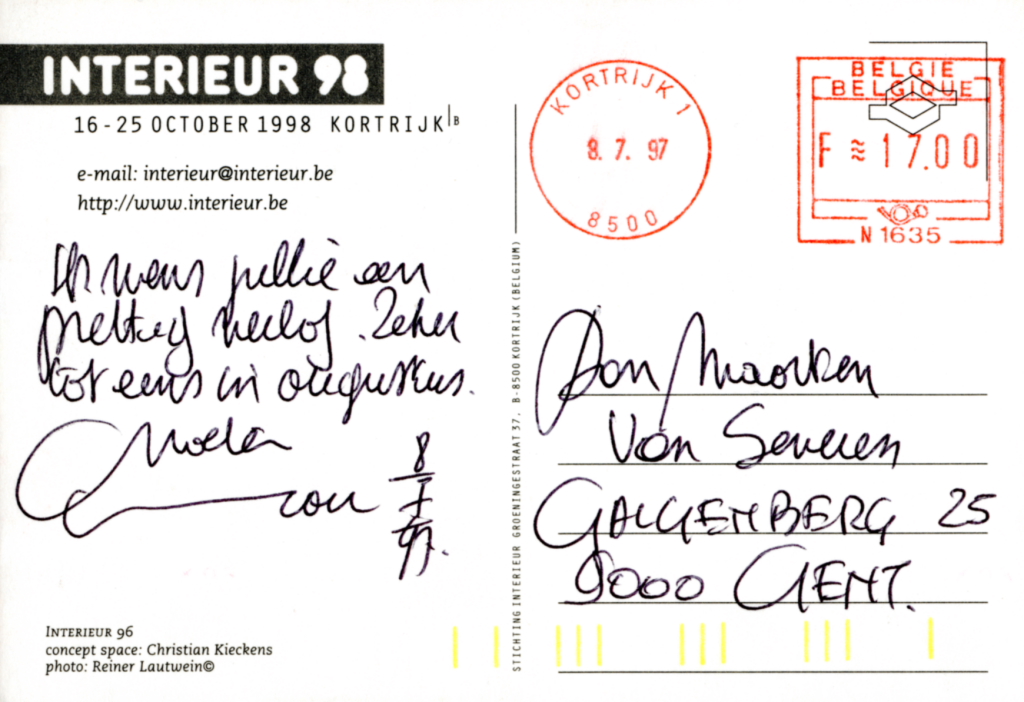 INTERIEUR 98
16-25 OCTOBER 1998 KORTRIJK B
e-mail: interieur@interieur.be
http://www.interieur.be
Ik wens jullie een
prettig verlof. Zeker
tot eens in augustus.
8
7
97.
INTERIEUR 96
concept space: Christian Kieckens
photo: Reiner Lautwein©
STICHTING INTERIEUR GROENINGESTRAAT 37, B-8500 KORTRIJK (BELGIUM)
KORTRIJK 1
8. 7. 97
8500
BELGIE
BELGIQUE
F ≋ 17.00
N 1635
Van Severen
GALGENBERG 25
9000 GENT.